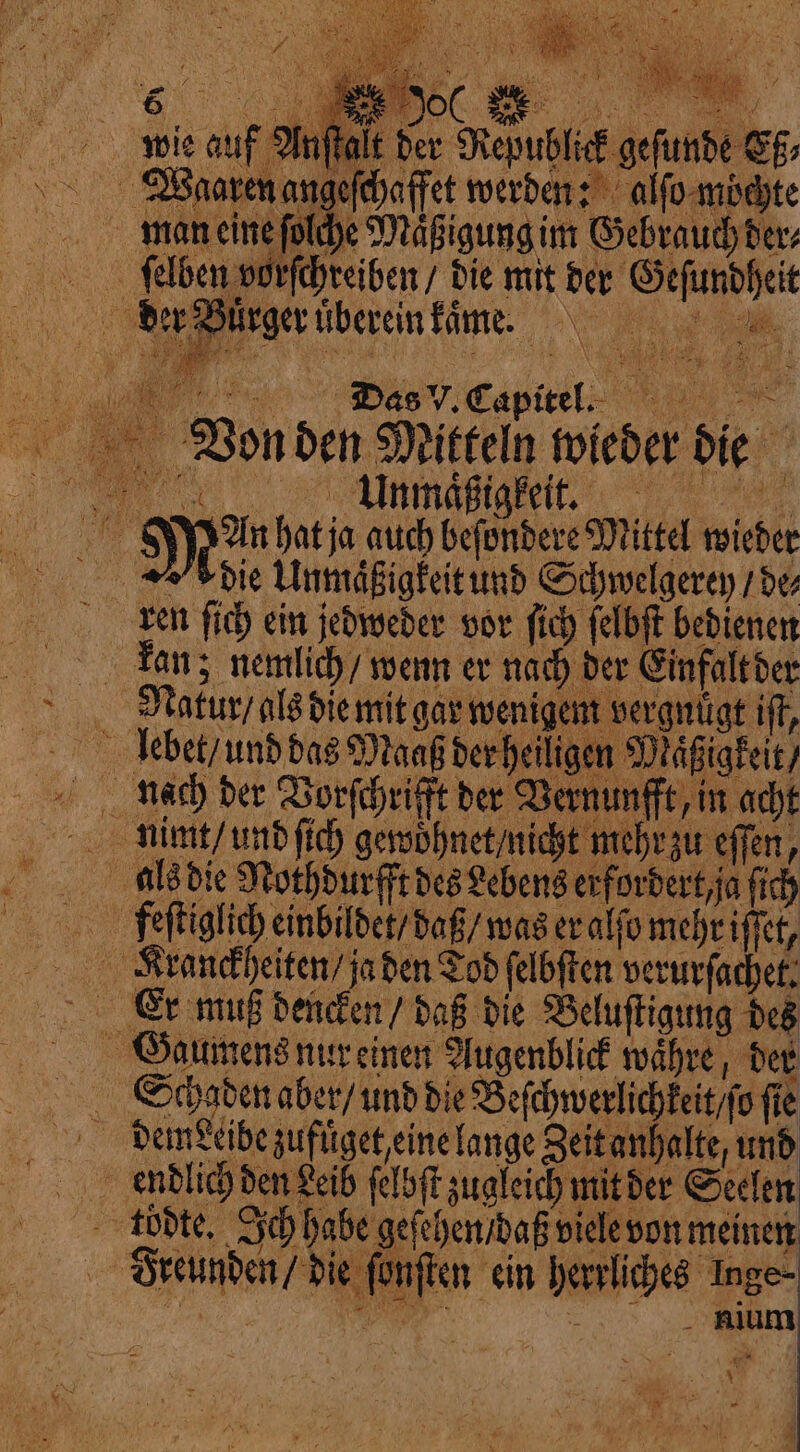 6 )o(
wie auf Anſtalt der Republick geſunde Eß⸗
Waaren angeſchaffet werden: alſo möchte
man eine ſolche Mäßigung im Gebrauch der⸗
ſelben vorſchreiben / die mit der Geſundheit
der Bürger überein käme.
Das V. Capitel.
Von den Mitteln wieder die
Unmäßigkeit.
MAn hat ja auch beſondere Mittel wieder
die Unmäßigkeit und Schwelgerey / de⸗
ren ſich ein jedweder vor ſich ſelbſt bedienen
kan; nemlich / wenn er nach der Einfalt der
Natur / als die mit gar wenigem vergnügt iſt,
lebet / und das Maaß der heiligen Mäßigkeit /
nach der Vorſchrifft der Vernunfft, in acht
nimt / und ſich gewöhnet / nicht mehr zu eſſen,
als die Nothdurfft des Lebens erfordert, ja ſich
feſtiglich einbildet / daß / was er alſo mehr iſſet,
Kranckheiten / ja den Tod ſelbſten verurſachet.
Er muß dencken / daß die Beluſtigung des
Gaumens nur einen Augenblick währe, der
Schaden aber / und die Beſchwerlichkeit / ſo ſie
dem Leibe zufüget, eine lange Zeit anhalte, und
endlich den Leib ſelbſt zugleich mit der Seelen
tödte. Ich habe geſehen / daß viele von meinen
Freunden / die ſonſten ein herrliches Inge-
nium